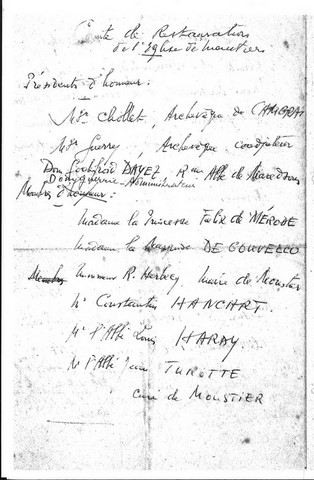 Comité de Restauration
de l'Eglise de Moustiers
Présidents d'honneur :
Mgr Chollet, Archevêque de CAMBRAI
Mgr Guerry, Archevêque coadjuteur
Dom Godefroid DAYEZ, Rme Abbé de Maredsous
Administrateur
Membres d'honneur :
Madame la Princesse Félix de MÉRODE
Madame la DE GOUVELLO
Membres Monsieur R. maire de Moustier
Mr Constantin HANCART.
Mr l'Abbé Louis HARAY.
Mr l'Abbé Jean TUROTTE
curé de MOUSTIER